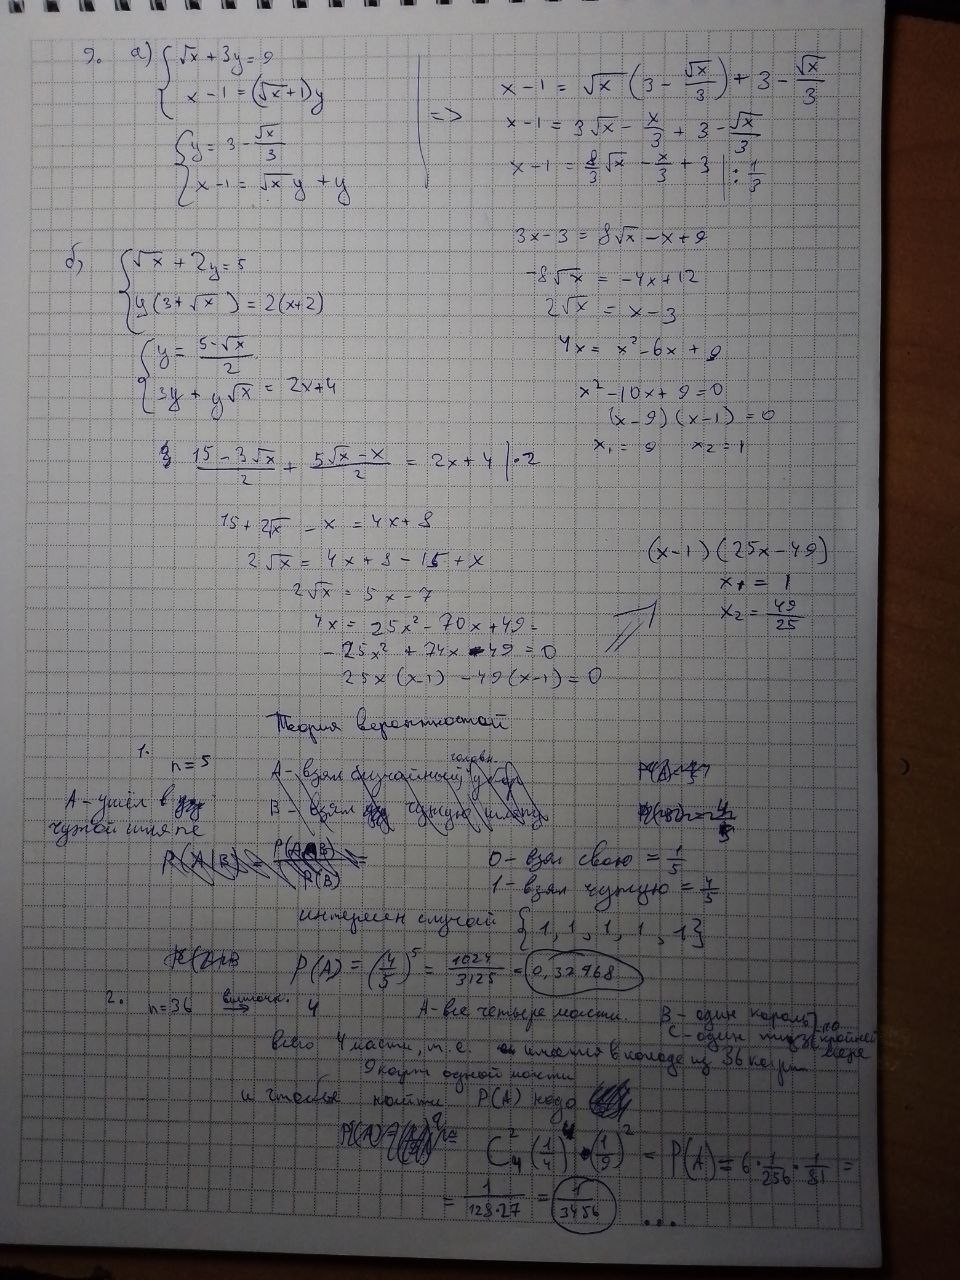 9. а) { √x + 3y = 9
x - 1 = (√x + 1) y
{ y = 3 - √x/3
x - 1 = √x y + y
=> x - 1 = √x (3 - √x/3) + 3 - √x/3
x - 1 = 3√x - x/3 + 3 - √x/3
x - 1 = 8/3 √x - x/3 + 3 | : 1/3
3x - 3 = 8√x - x + 9
-8√x = -4x + 12
2√x = x - 3
4x = x² - 6x + 9
x² - 10x + 9 = 0
(x - 9) (x - 1) = 0
x₁ = 9 x₂ = 1
б) { √x + 2y = 5
y (3 + √x) = 2(x+2)
{ y = (5 - √x)/2
3y + y√x = 2x + 4
(15 - 3√x)/2 + (5√x - x)/2 = 2x + 4 | · 2
15 + 2√x - x = 4x + 8
2√x = 4x + 8 - 15 + x
2√x = 5x - 7
4x = 25x² - 70x + 49 =
-25x² + 74x - 49 = 0
25x (x-1) - 49 (x-1) = 0
=> (x-1) (25x - 49)
x₁ = 1
x₂ = 49/25
Теория вероятностей
1. n = 5
А - ушёл в
чужой шляпе
0 - взял свою = 1/5
1 - взял чужую = 4/5
интересен случай {1, 1, 1, 1, 1}
P(A) = (4/5)⁵ = 1024/3125 = 0,32968
2. n = 36 → 4 А - все четыре масти. В - один король
С - один туз по крайней мере
всего 4 масти, т.е. имеется в колоде из 36 карт
9 карт одной масти
и чтобы найти P(A) надо
C₄² (1/4)⁴ · (1/9)² = P(A) = 6 · 1/256 · 1/81 =
= 1/(128·27) = 1/3456 ...